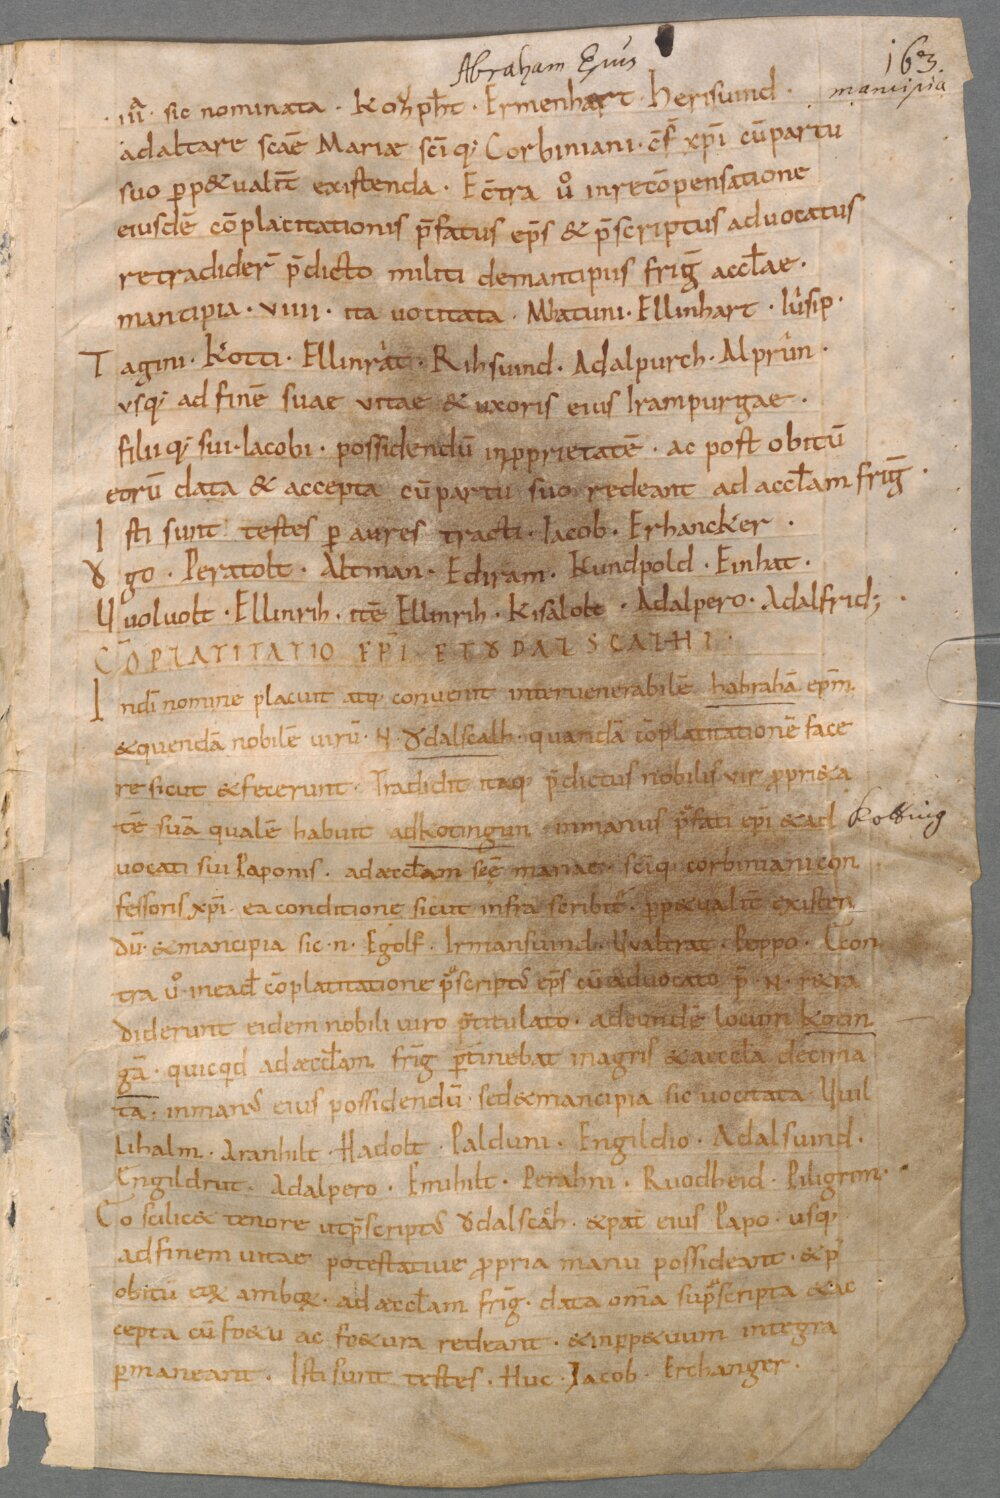 Abraham Epūs
163.
mancipia
· iiii͛ · sic nominata · Kozp̄ht · Ermenhart · Herisuind ·
adaltare scāe Mariae scīq; Corbiniani · c̄f xp̄i cūpartu
suo ꝑp&ualit̄ existenda · Ec̄tra ůo inrecōpensatione
eiusdē cōplacitationis p̄fatus ep̄s & p̄scriptus aduocatus
retradider̄ p̄dicto militi demancipiis friḡ accłae ·
mancipia · viiii · ita uocitata · Matuni · Ellinhart · Iu̓sip ·
Tagini · Kotti · Ellinrat · Rihsuind · Adalpurch · Alprun ·
vsq; ad finē suae vitae & uxoris eius Irampurgae ·
filiiq; sui · Iacobi · possidendū inꝓprietatē · ac post obitū
eorū data & accepta cūpartu suo redeant ad accłam friḡ ·
Isti sunt testes ꝑ aures tracti · Iacob · Erhancker ·
Ȣgo · Peratolt · Altman · Ediram · Kundpold · Einhat ·
Uuoluolt · Ellinrih · itē Ellinrih · Kisalolt · Adalpero · Adalfrid; ·
CŌPLATITATIO EP̄I ETȢDALSCALHI ·
Indī nomine placuit atq; conuenit interuenerabilē habrahā ep̄m
&quendā nobilē uirū · N · Ȣdalscalh · quandā cōplacitationē face
re sicut &fecerunt · Tradidit itaq; p̄dictus nobilis vir ꝓpri&a
tē suā qualē habuit adkotingun inmanus p̄fati ep̄i &ad
Kotting
uocati sui Paponis · adaeccłam scē mariae · scīq; corbiniani con
fessoris xp̄i · ea conditione sicut infra scribit̄ · ꝑp&ualit̄ existen
dū · &mancipia sic · n · Egolf · Irmansuind · Uualtrat · Poppo · Econ
tra ůo · ineadē cōplacitatione p̄script᾽ ep̄s cū aduocato p̄ · N · r&ra
diderunt eidem nobili uiro p̄titulato · adeundē locum kotin
gā · quicqd adaeccłam friḡ ꝑtinebat inagris &aeccła decima
ta · inman᾽ eius possidendū · sed&mancipia sic uocitata · Uuil
lihalm · Aranhilt · Hadolt · Palduni · Engildio · Adalsuind ·
Engildrut · Adalpero · Emihilt · Perahni · Ruodheid · Piligrim ·
Eo scilic& tenore utp̄script᾽ Ȣdalscalh · &pat̄ eius Papo · usq;
adfinem uitae potestatiue ꝓpria manu possideant · &p᾽
obitū eoꝝ amboꝝ · ad aeccłam friḡ · data om̄ia sup̄scripta &ac
cepta cū fo&u ac fo&ura redeant · &inꝑp&uum integra
ꝑmaneant · Isti sunt testes · Huc · Jacob · Erchanger ·